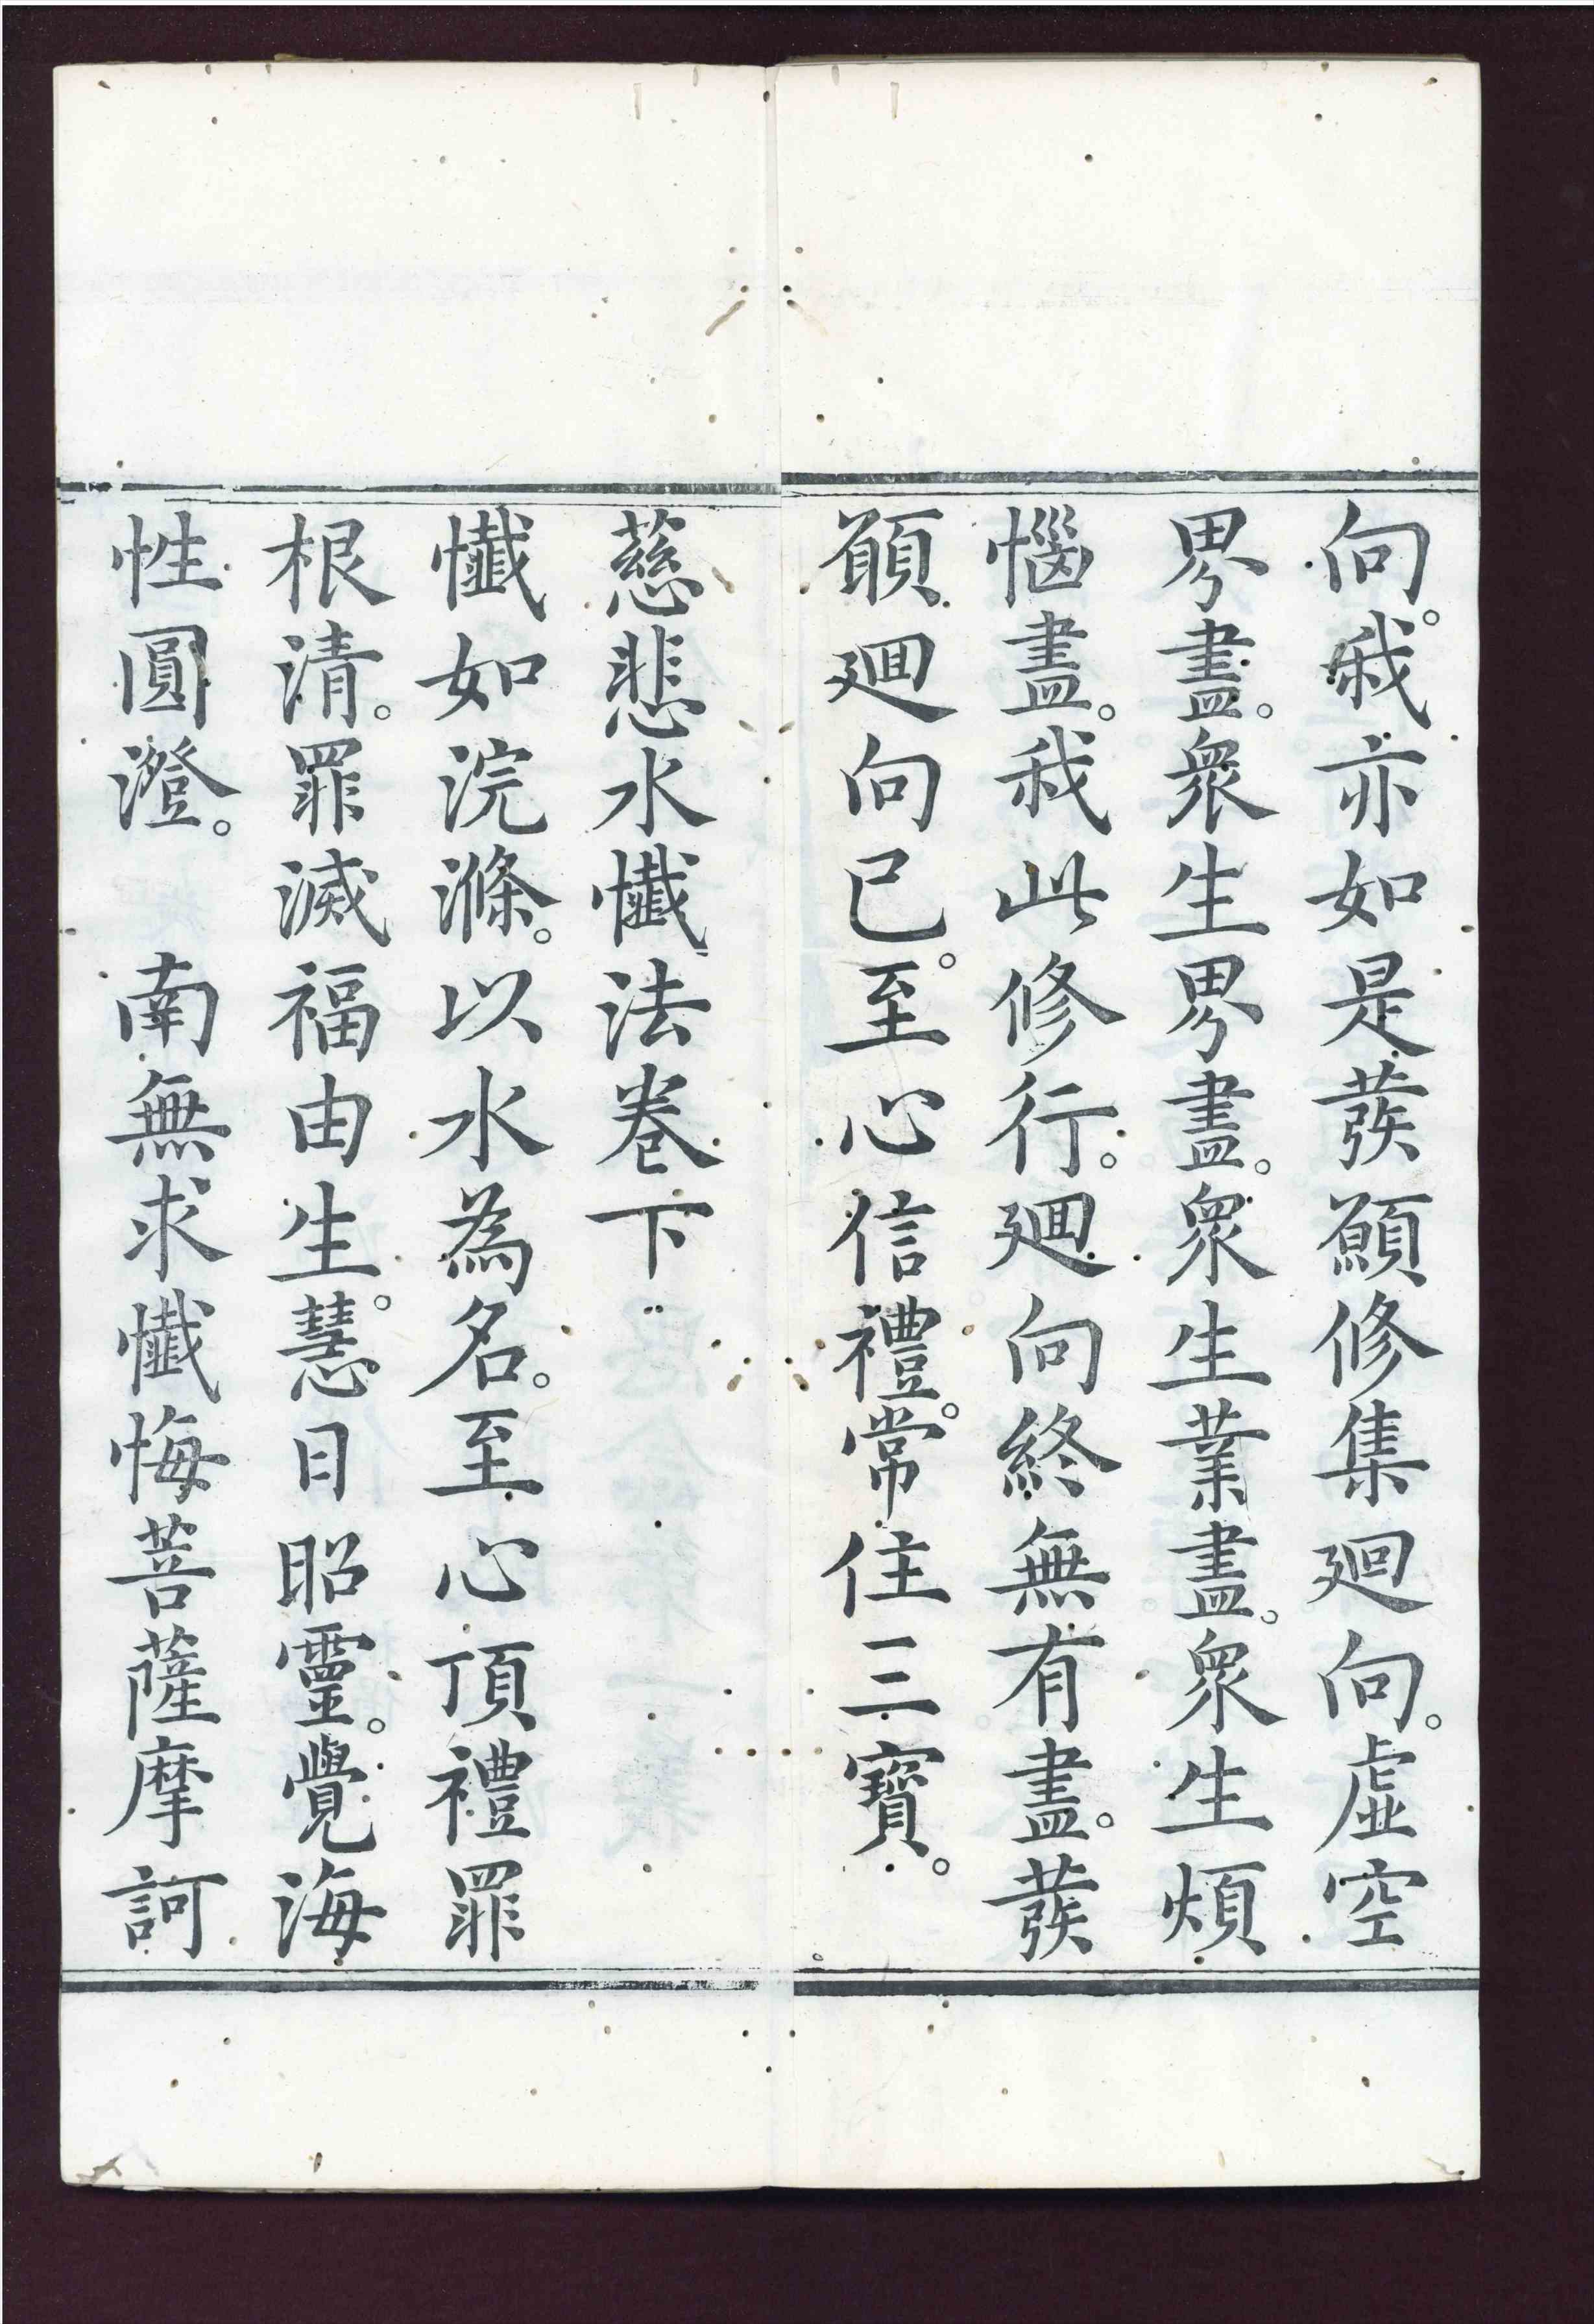 向。我亦如是發願修集廻向。虛空
界盡。衆生界盡。衆生業盡。衆生煩
惱盡。我此修行。廻向終無有盡。發
願廻向已。至心信禮。常住三寶。
慈悲水懺法卷下
懺如浣滌。以水為名。至心頂禮罪
根清。罪滅福由生。慧目昭靈。覺海
性圓澄。　南無求懺悔菩薩摩訶